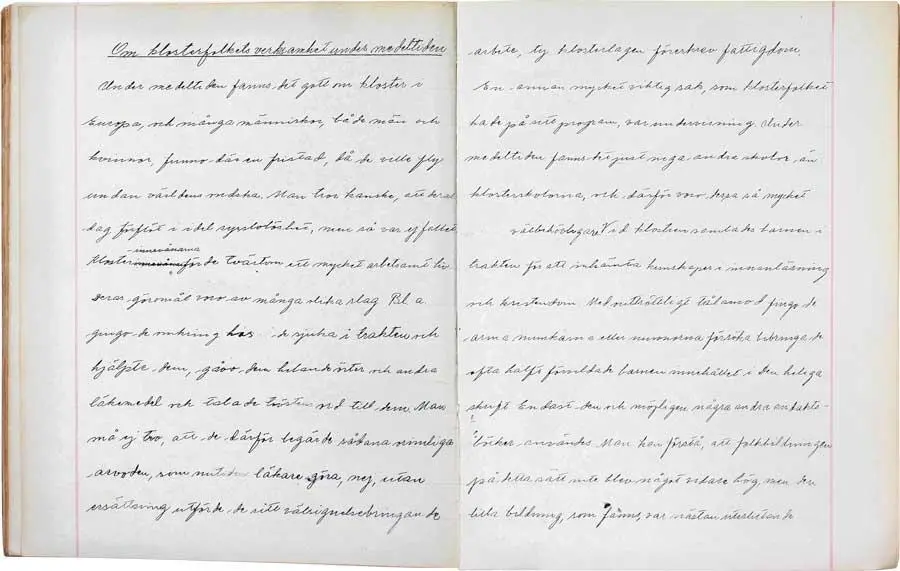 Om klosterfolkets verksamhet under medeltiden
Under medeltiden fanns det gott om kloster i
Europa, och många människor, både män och
kvinnor, funno där en fristad, då de ville fly
undan världens ondska. Man tror kanske, att deras
dag förflöt i idel sysslolöshet, men så var ej fallet
Klosterinnevånarna förde tvärtom ett mycket arbetsamt liv
deras göromål voro av många olika slag Bl. a.
gingo de omkring hos de sjuka i trakten och
hjälpte dem, gåvo dem helande örter och andra
läkemedel och talade tröstens ord till dem. Man
må ej tro, att de därför begärde sådana orimliga
arvoden, som nutidens läkare göra, nej, utan
ersättning utförde de sitt välsignelsebringande
arbete, ty klosterlagen föreskrev fattigdom.
En annan mycket viktig sak, som klosterfolket
hade på sitt program, var undervisning. Under
medeltiden fanns det just inga andra skolor än
klosterskolorna, och därför voro dessa så mycket
välbehövligare Vid klostren samlades barnen i
trakten för att inhämta kunskaper i innanläsning
och kristendom. Med outtröttligt tålamod fingo de
arma munkarna eller nunnorna försöka bibringa de
ofta halft förvildade barnen innehållet i den heliga
skrift Endast den och möjligen några andra andakts-
böcker användes. Man kan förstå, att folkbildningen
på detta sätt inte blev något vidare hög, men den
lilla bildning, som fanns, var nästan uteslutande